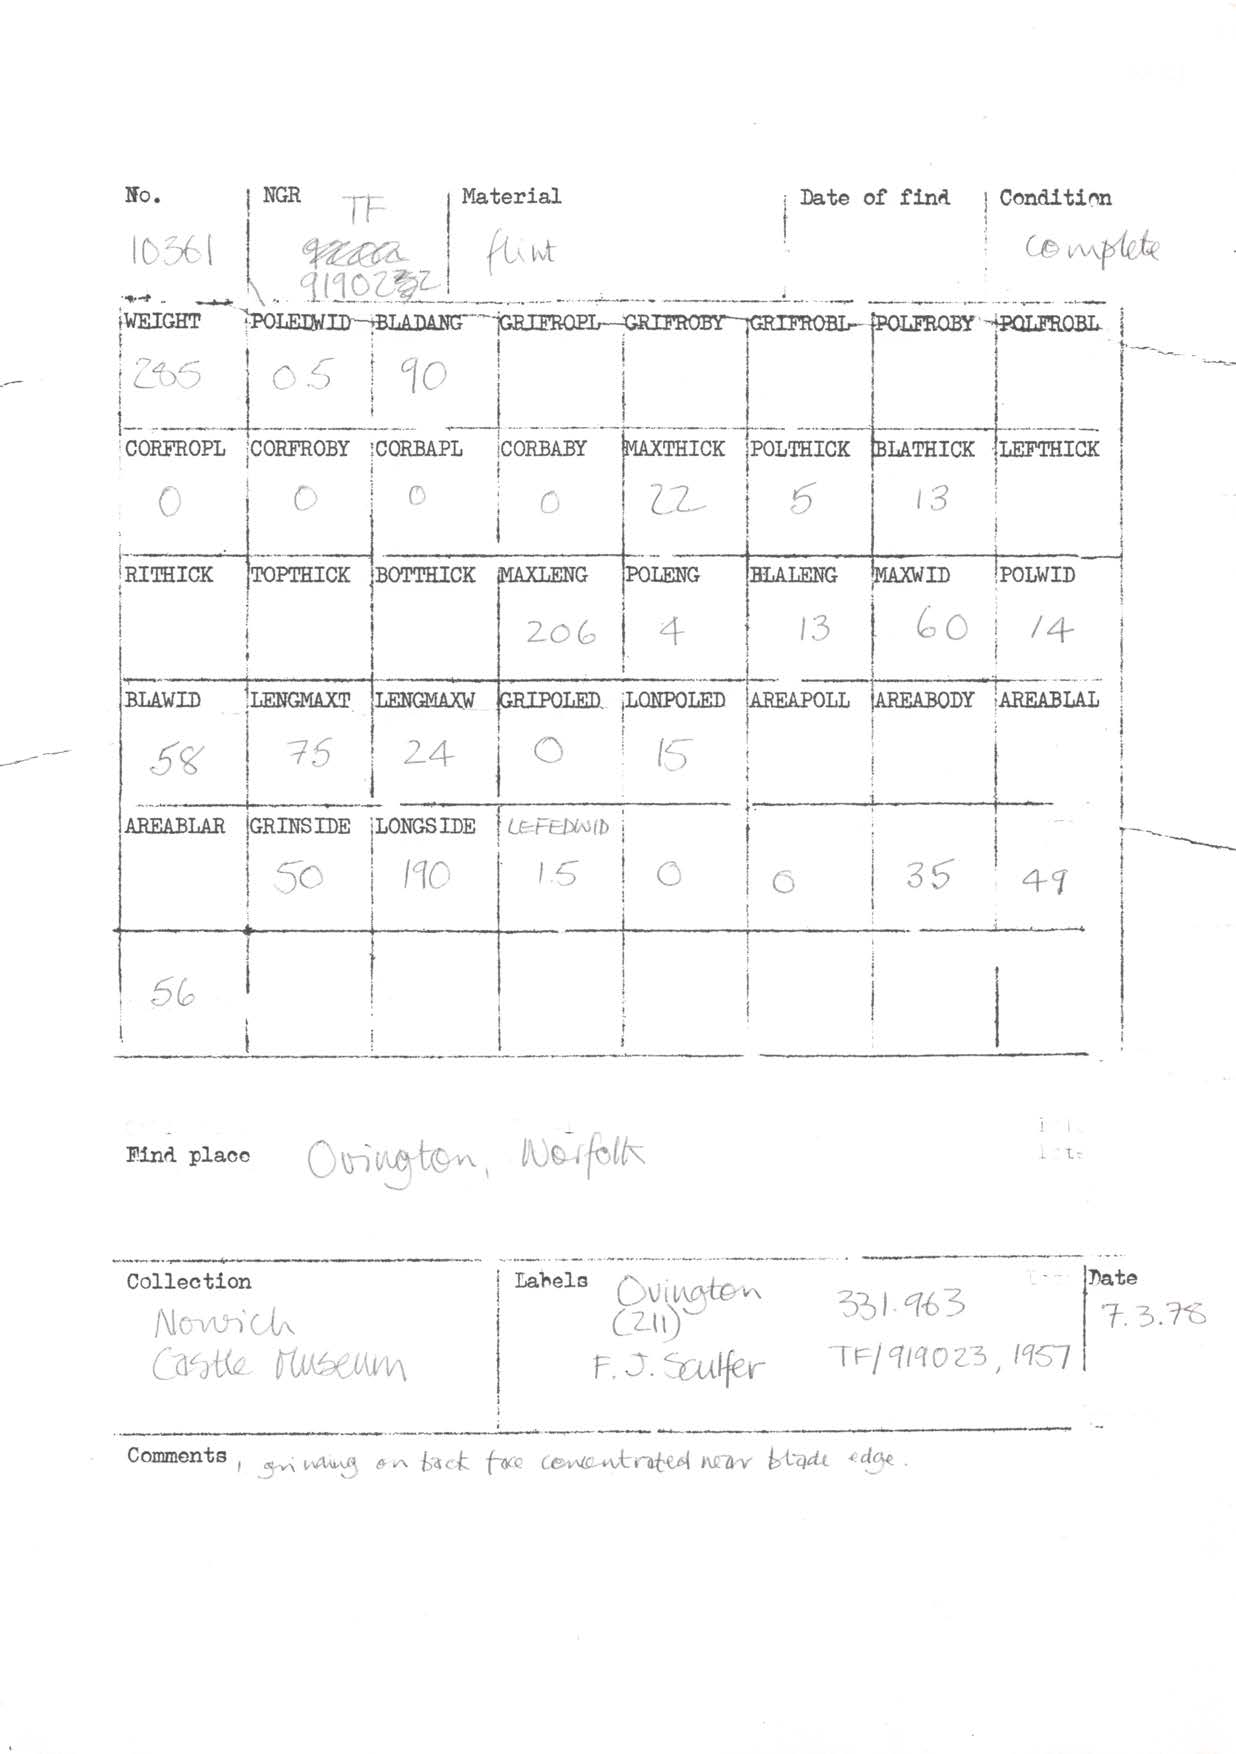 No. NGR TF Material Date of find Condition
10361 flint complete
WEIGHT POLEDWID BLADANG GRIFROPL GRIFROBY GRIFROBL POLFROBY POLFROBL
285 0.5 90
CORFROPL CORFROBY CORBAPL CORBABY MAXTHICK POLTHICK BLATHICK LEFTHICK
0 0 0 0 22 5 13
RITHICK TOPTHICK BOTTHICK MAXLENG POLENG BLALENG MAXWID POLWID
206 4 13 60 14
BLAWID LENGMAXT LENGMAXW GRIPOLED LONPOLED AREAPOLL AREABODY AREABLAL
58 75 24 0 15
AREABLAR GRINSIDE LONGSIDE LEFEDWID
50 190 1.5 0 0 35 49
56
Find place Ovington, Norfolk
Collection Labels Ovington 331.963 Date
Norwich (211) 7.3.78
Castle Museum F. J. Sculfer TF/919023, 1957
Comments, grinding on back face concentrated near blade edge.